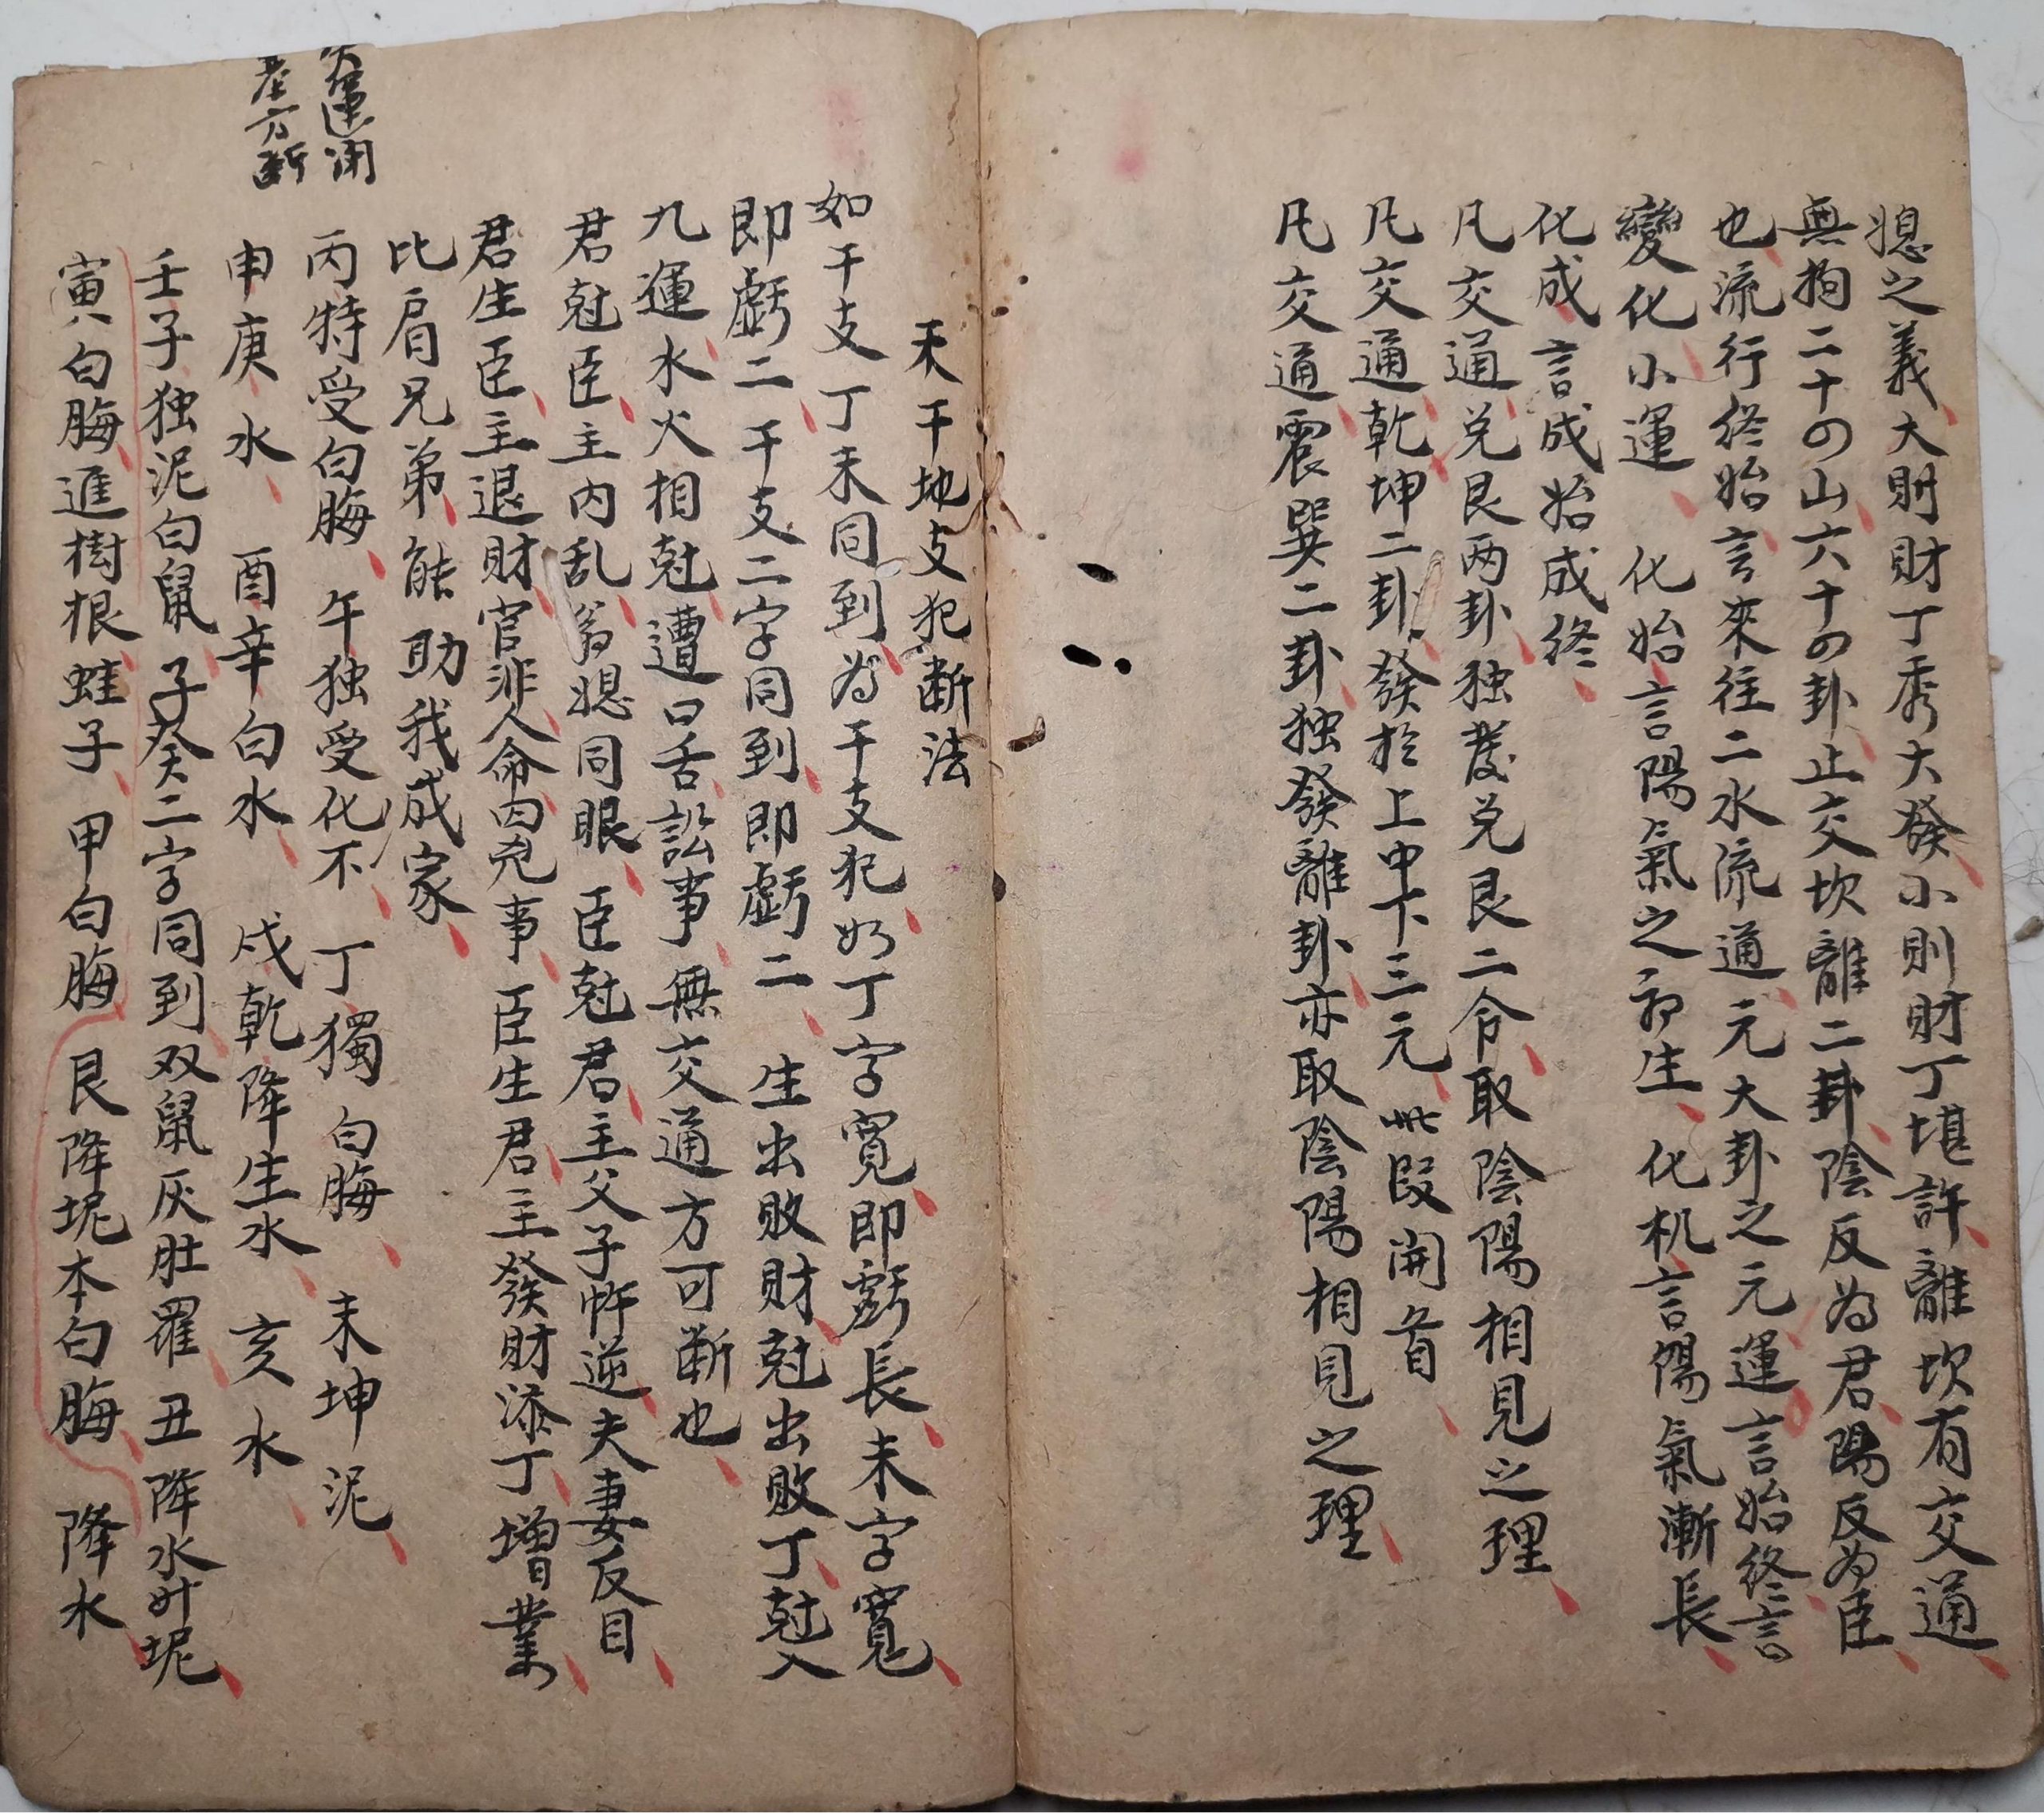 媳之義大則財丁秀大發小則財丁堪許離坎有交通
無拘二十四山六十四卦止交坎離二卦陰反為君陽反為臣
也流行終始言來往二水流通元大卦之元運言始終言
變化小運 化始言陽氣之初生化机言陽氣漸長
化成言成始成終
凡交通兑艮两卦独發兑艮二令取陰陽相見之理
凡交通乾坤二卦發於上中下三元此段開首
凡交通震巽二卦独發離卦亦取陰陽相見之理
天干地支犯断法
如干支丁未同到為干支犯如丁字寬即虧長未字寬
即虧二干支二字同到即虧二 生出敗財尅出敗丁尅入
九運水火相尅遭口舌訟事無交通方可断也
君尅臣主内乱翁媳同眠臣尅君主父子忤逆夫妻反目
君生臣主退財官非人命凶死事臣生君主發財添丁增業
比肩兄弟能助我成家
丙特受白䏔午独受化不丁獨白䏔未坤泥
申庚水酉辛白水戌乾降生水亥水
壬子独泥白鼠子癸二字同到双鼠灰肚羅丑降水廾坭
寅白䏔進樹根蛙子甲白䏔艮降坭本白䏔降水
運開
方断